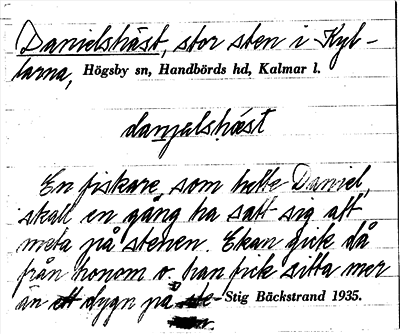 Danielshäst, stor sten i Kyl-
larna, Högsby sn, Handbörds hd, Kalmar l.
danjalshäst
En fiskare, som hette Daniel,
skall en gång ha satt sig att
meta på stenen. Ekan gick då
från honom o. han fick sitta mer
än ett dygn på
Stig Bäckstrand 1935.